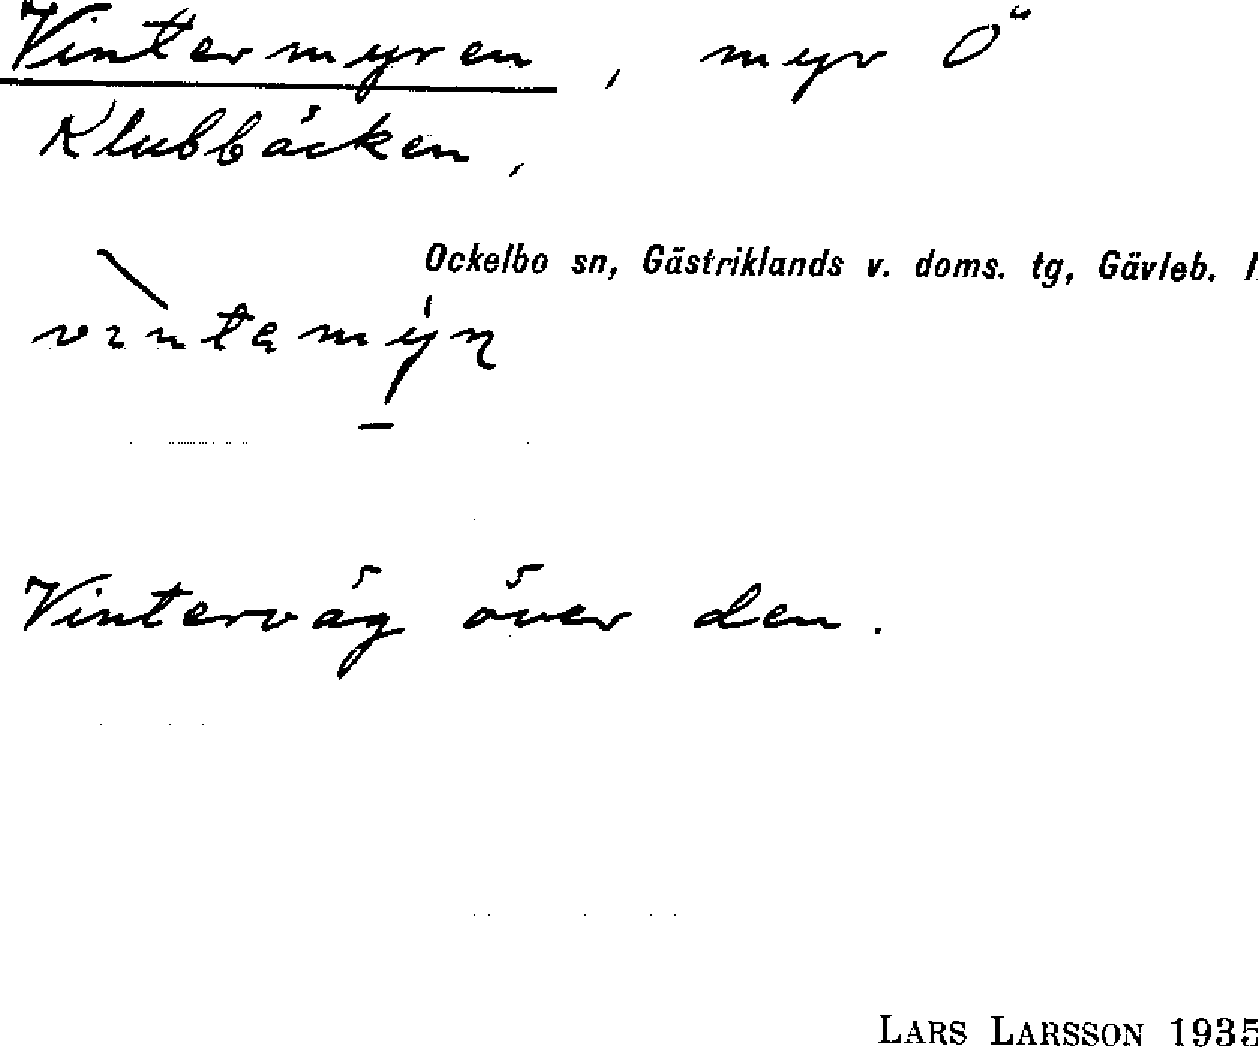 Vintermyren, myr Ö
Klubbäcken,
Ockelbo sn, Gästriklands v. doms. tg, Gävleb. l
Vinterväg över den.
LARS LARSSON 1935